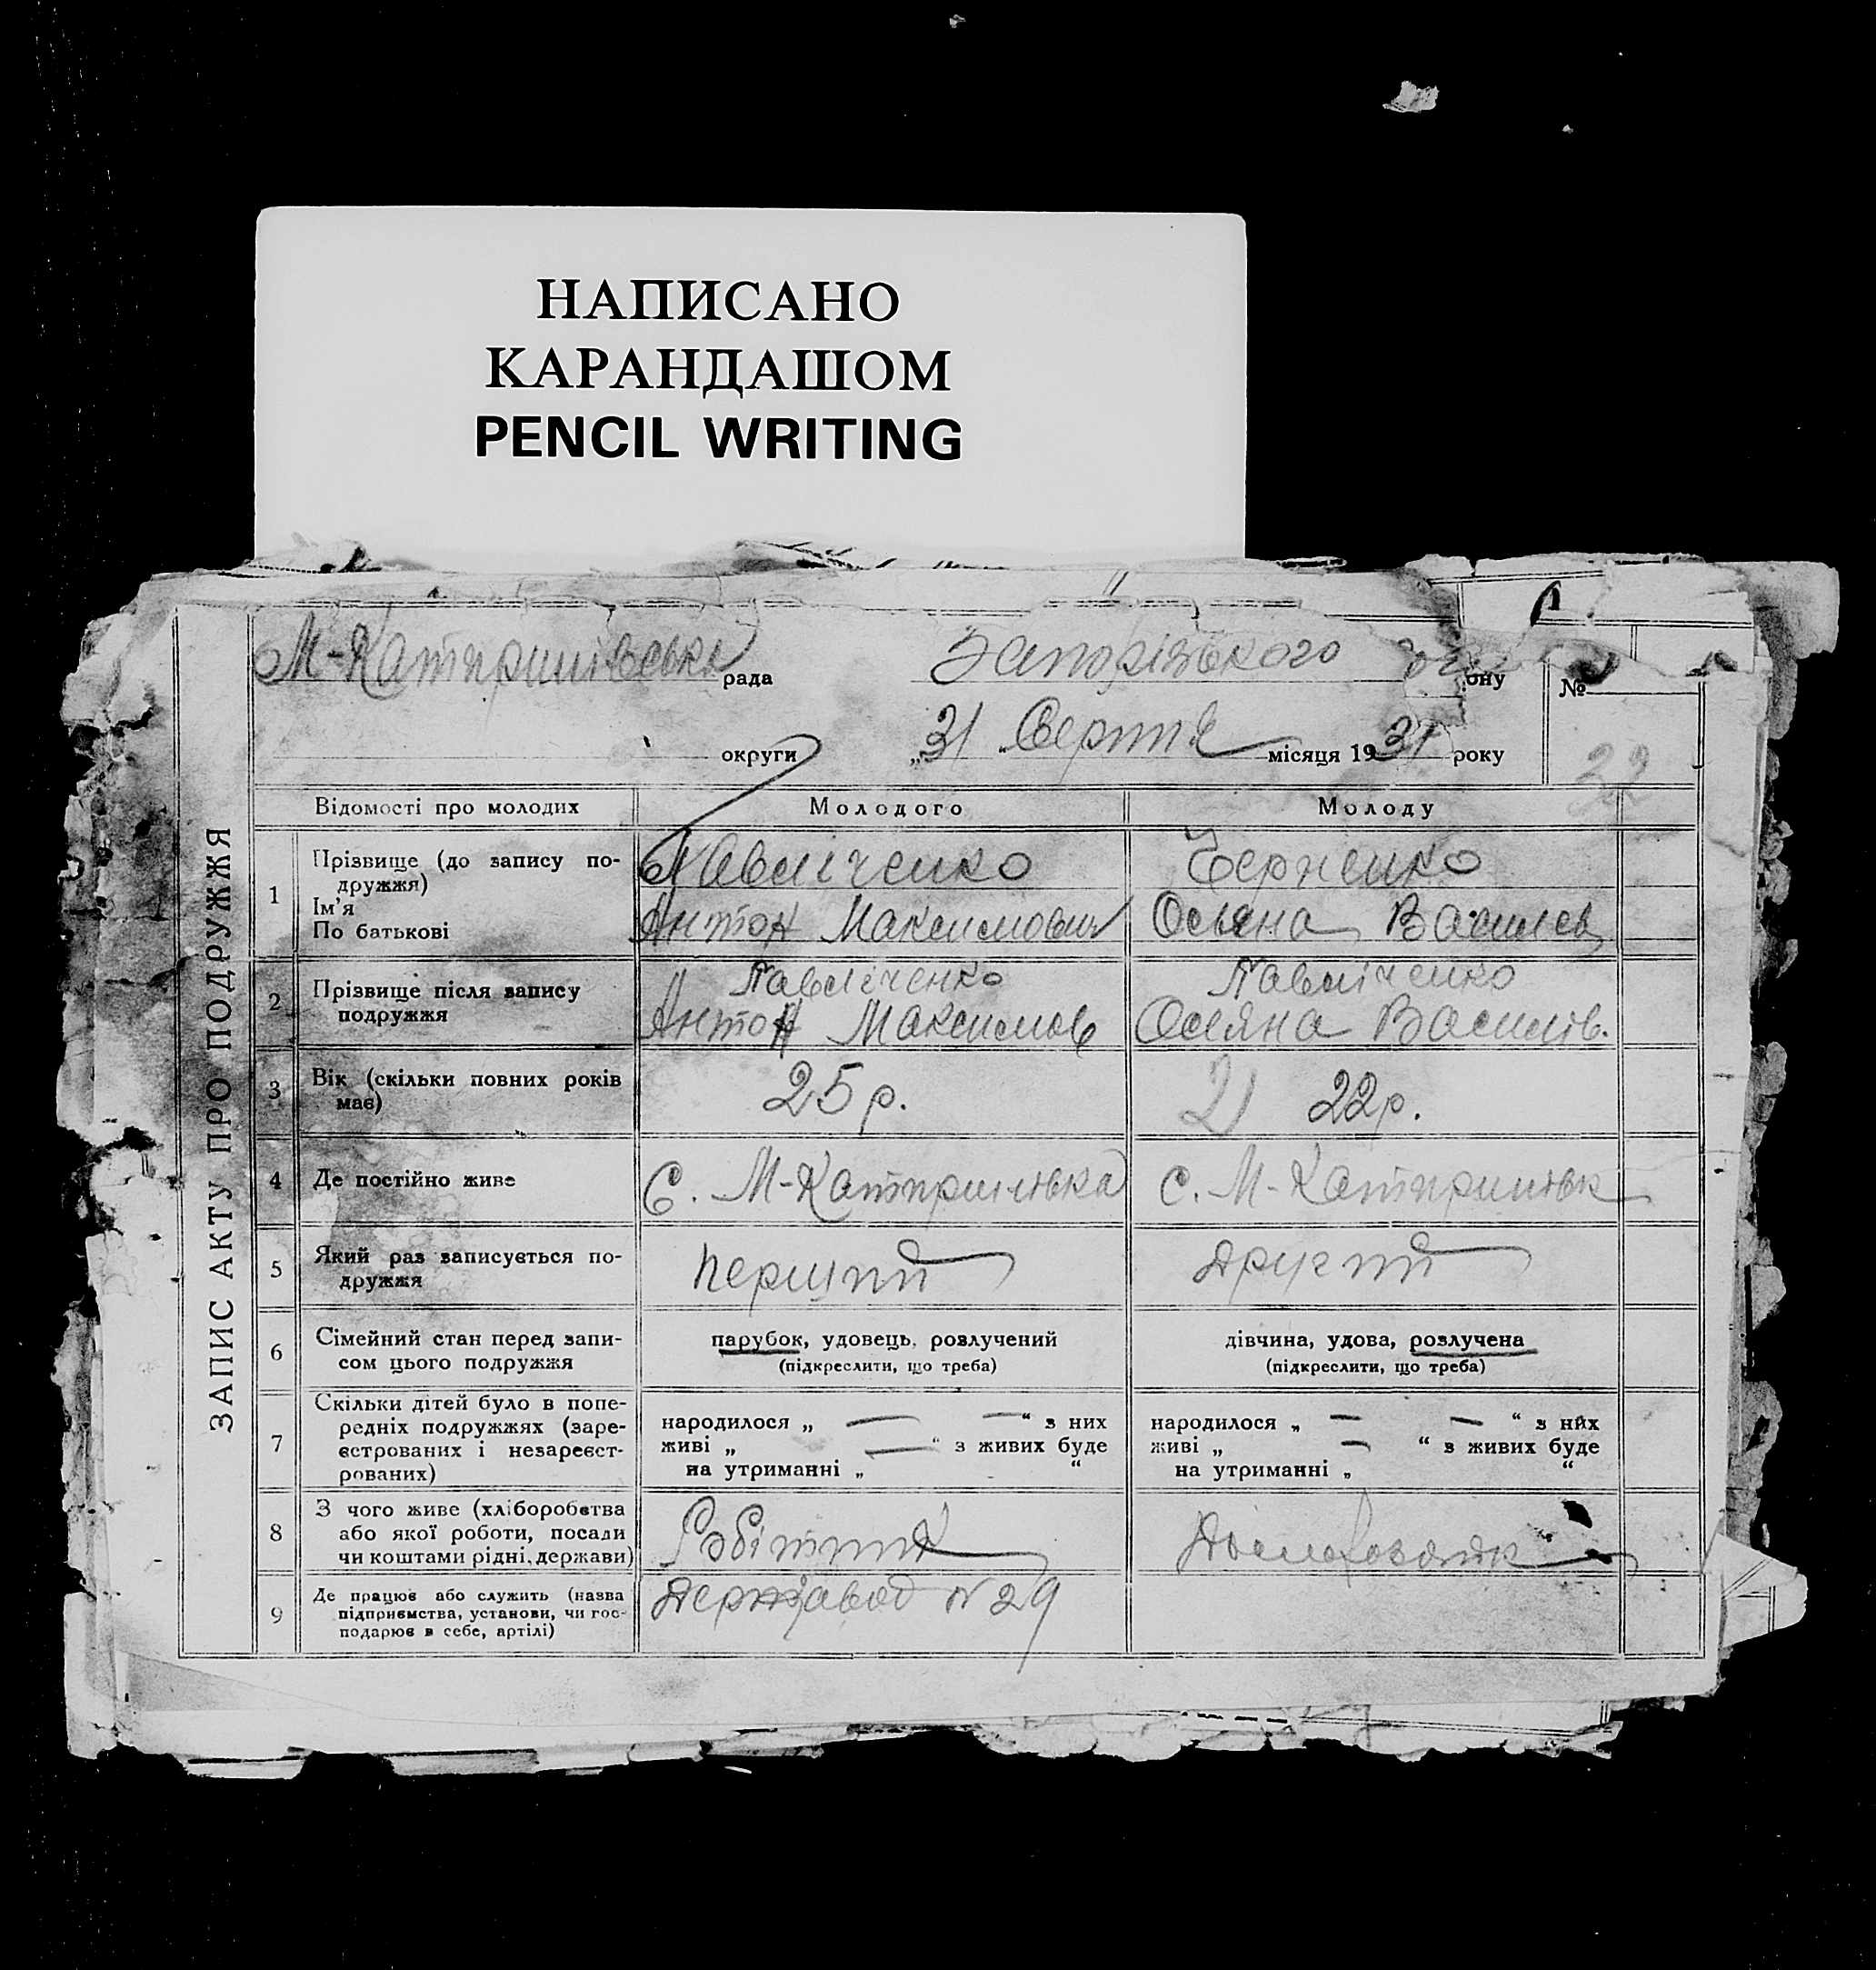 НАПИСАНО
КАРАНДАШОМ
PENCIL WRITING
ЗАПИС АКТУ ПРО ПОДРУЖЖЯ
М-Катеринівська рада Запорізького ону №
округи „31 Серпня місяця 1931 року 22
Відомості про молодих Молодого Молоду
1 Прізвище (до запису по-
дружжя)
Ім'я
По батькові
Павліченко Черненко
Антон Максимович Василєв
2 Прізвище після запису
подружжя
Павліченко Павліченко
Антон Максимов Василів.
3 Вік (скільки повних років
має)
25 р. 21 22 р.
4 Де постійно живе С. М-Катиринівка с. М-Катиринівк
5 Який раз записується по-
дружжя
перший другий
6 Сімейний стан перед запи-
сом цього подружжя
парубок, удовець, розлучений
(підкреслити, що треба)
дівчина, удова, розлучена
(підкреслити, що треба)
7 Скільки дітей було в попе-
редніх подружжях (заре-
єстрованих і незареєст-
рованих)
народилося „ — — “ з них
живі „ — “ з живих буде
на утриманні „ “
народилося „ — — “ з них
живі „ — “ з живих буде
на утриманні „ “
8 З чого живе (хліборобства
або якої роботи, посади
чи коштами рідні, держави)
Робітник
9 Де працює або служить (назва
підприємства, установи, чи гос-
подарює в себе, артілі)
Держзавод №29